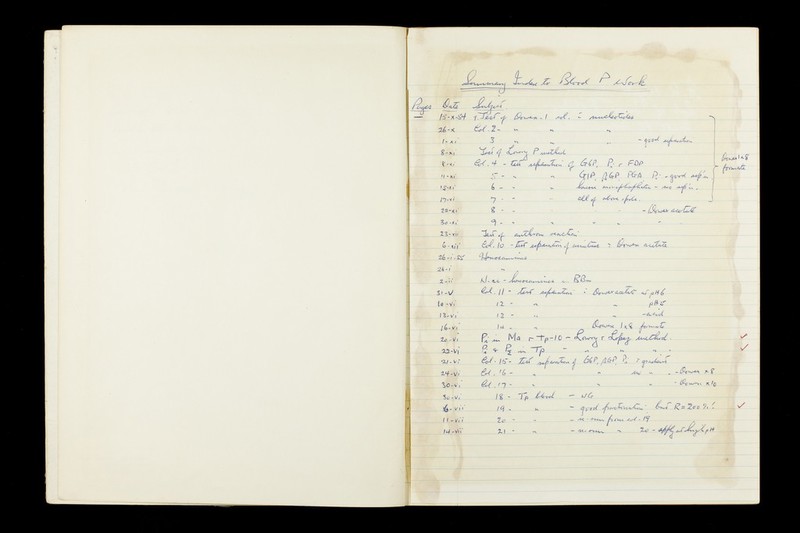 Summary Index to Blood P Work
Pages Date Subject
15-x-54 Test of Dowex-1 col. = nucleotides
26-x Col. 2 - " " "
1-xi 3 " " " - good separation
8-xi Test of Lowry P method
8-xi Col. 4 - test separation of G6P, Pi + FDP
11-xi 5 - " " G1P, βGP, PGA, Pi - good sep'n
15-xi 6 - " " - no sep'n
17-xi 7 - " all of above
Dowex 1x8 formate
22-xi 8 - " " - Dowex acetate
30-xi 9 - " " " "
23-xii Test of anthrone reaction
6-xii Col. 10 - test separation of = Dowex acetate
26-i-55 Hexosamines
26-i "
2-ii
31-v Col. 11 - test separation = Dowex acetate at pH 6
10-vi 12 - " " pH 5
13-vi 13 - " " - acid
16-vi 14 - " Dowex 1x8 formate
20-vi Pi in Ma + Tp-10 - Lowry + Lopez method
22-vi in Tp - " " "
21-vi Col. 15 - test separation of G6P, βGP, Pi gradient
24-vi Col. 16 - " " " - Dowex x8
30-vi Col. 17 - " " " - Dowex x10
30-vi 18 - Tp blood
6-vii 19 - " " - good fractionation but R = 200%!
11-vii 20 - " - re-run from col. 19
14-vii 21 - " - re-run " 20 - apply at high pH